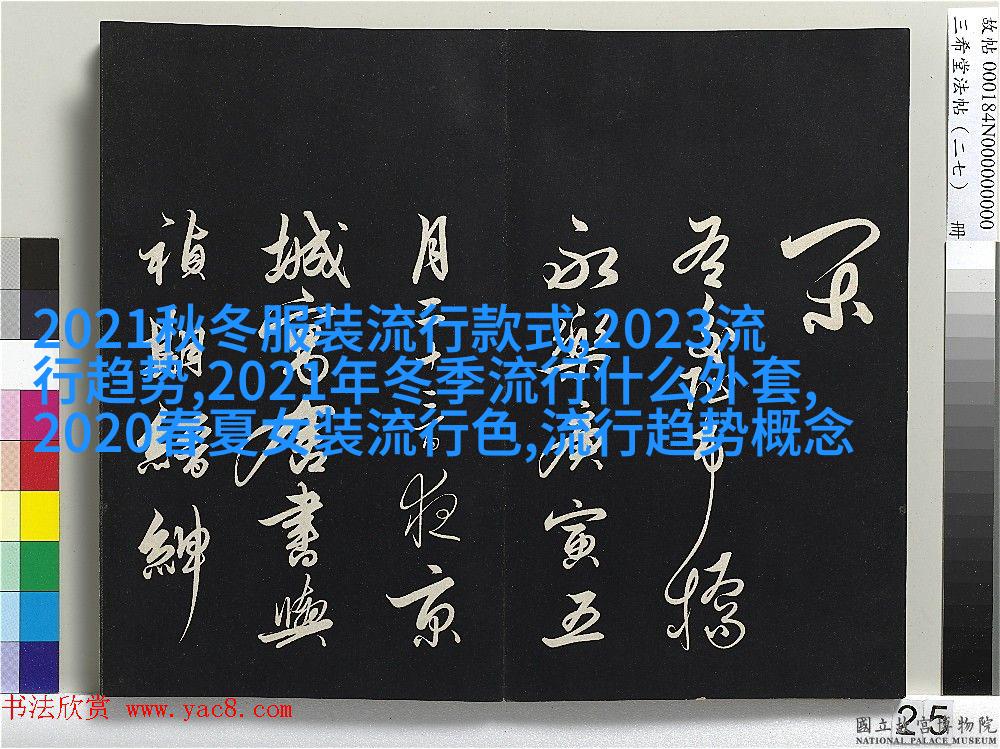 故帖 000184N000000000
三希堂法帖(二七) 册
永樂庚寅五
月二十二夜京
城寓舍書與
禎期縉紳
2021秋冬服装流行款式,2023流
行趋势,2021年冬季流行什么外套,
2020春夏女装流行色,流行趋势概念
书法欣赏 www.yac8.com
25
國立故宮博物院
NATIONAL PALACE MUSEUM